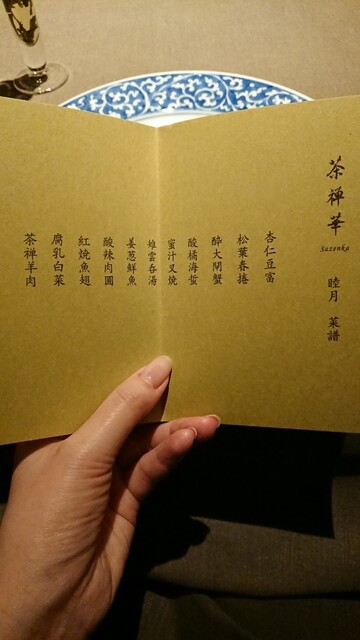 茶禅華
Sazenka
睦月 菜譜
杏仁豆富
松葉春捲
酔大閘蟹
酸橘海蜇
蜜汁叉焼
雉雲呑湯
姜葱鮮魚
酸辣肉圓
紅焼魚翅
腐乳白菜
茶禅羊肉